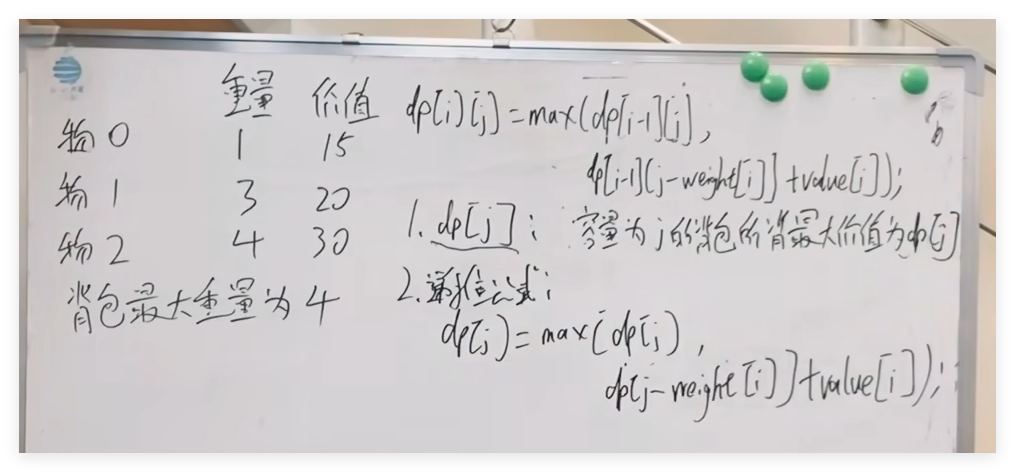 重量 价值
物0 1 15
物1 3 20
物2 4 30
背包最大重量为4
dp[i][j]=max(dp[i-1][j],
dp[i-1][j-weight[i]]+value[i]);
1. dp[j]: 容量为j的背包的背最大价值为dp[j]
2. 递推公式:
dp[j]=max(dp[j],
dp[j-weight[i]]+value[i]);